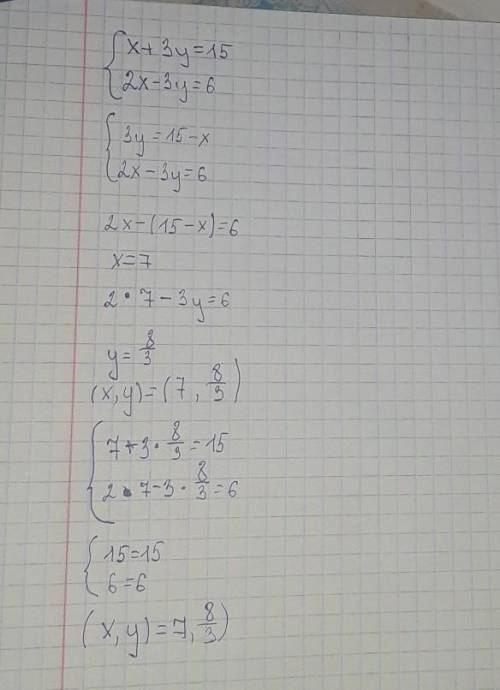 { x+3y=15
2x-3y=6
{ 3y=15-x
2x-3y=6
2x-(15-x)=6
x=7
2•7-3y=6
y=8/3
(x,y)=(7,8/3)
{ 7+3•8/3=15
2•7-3•8/3=6
{ 15=15
6=6
(x,y)=7,8/3)